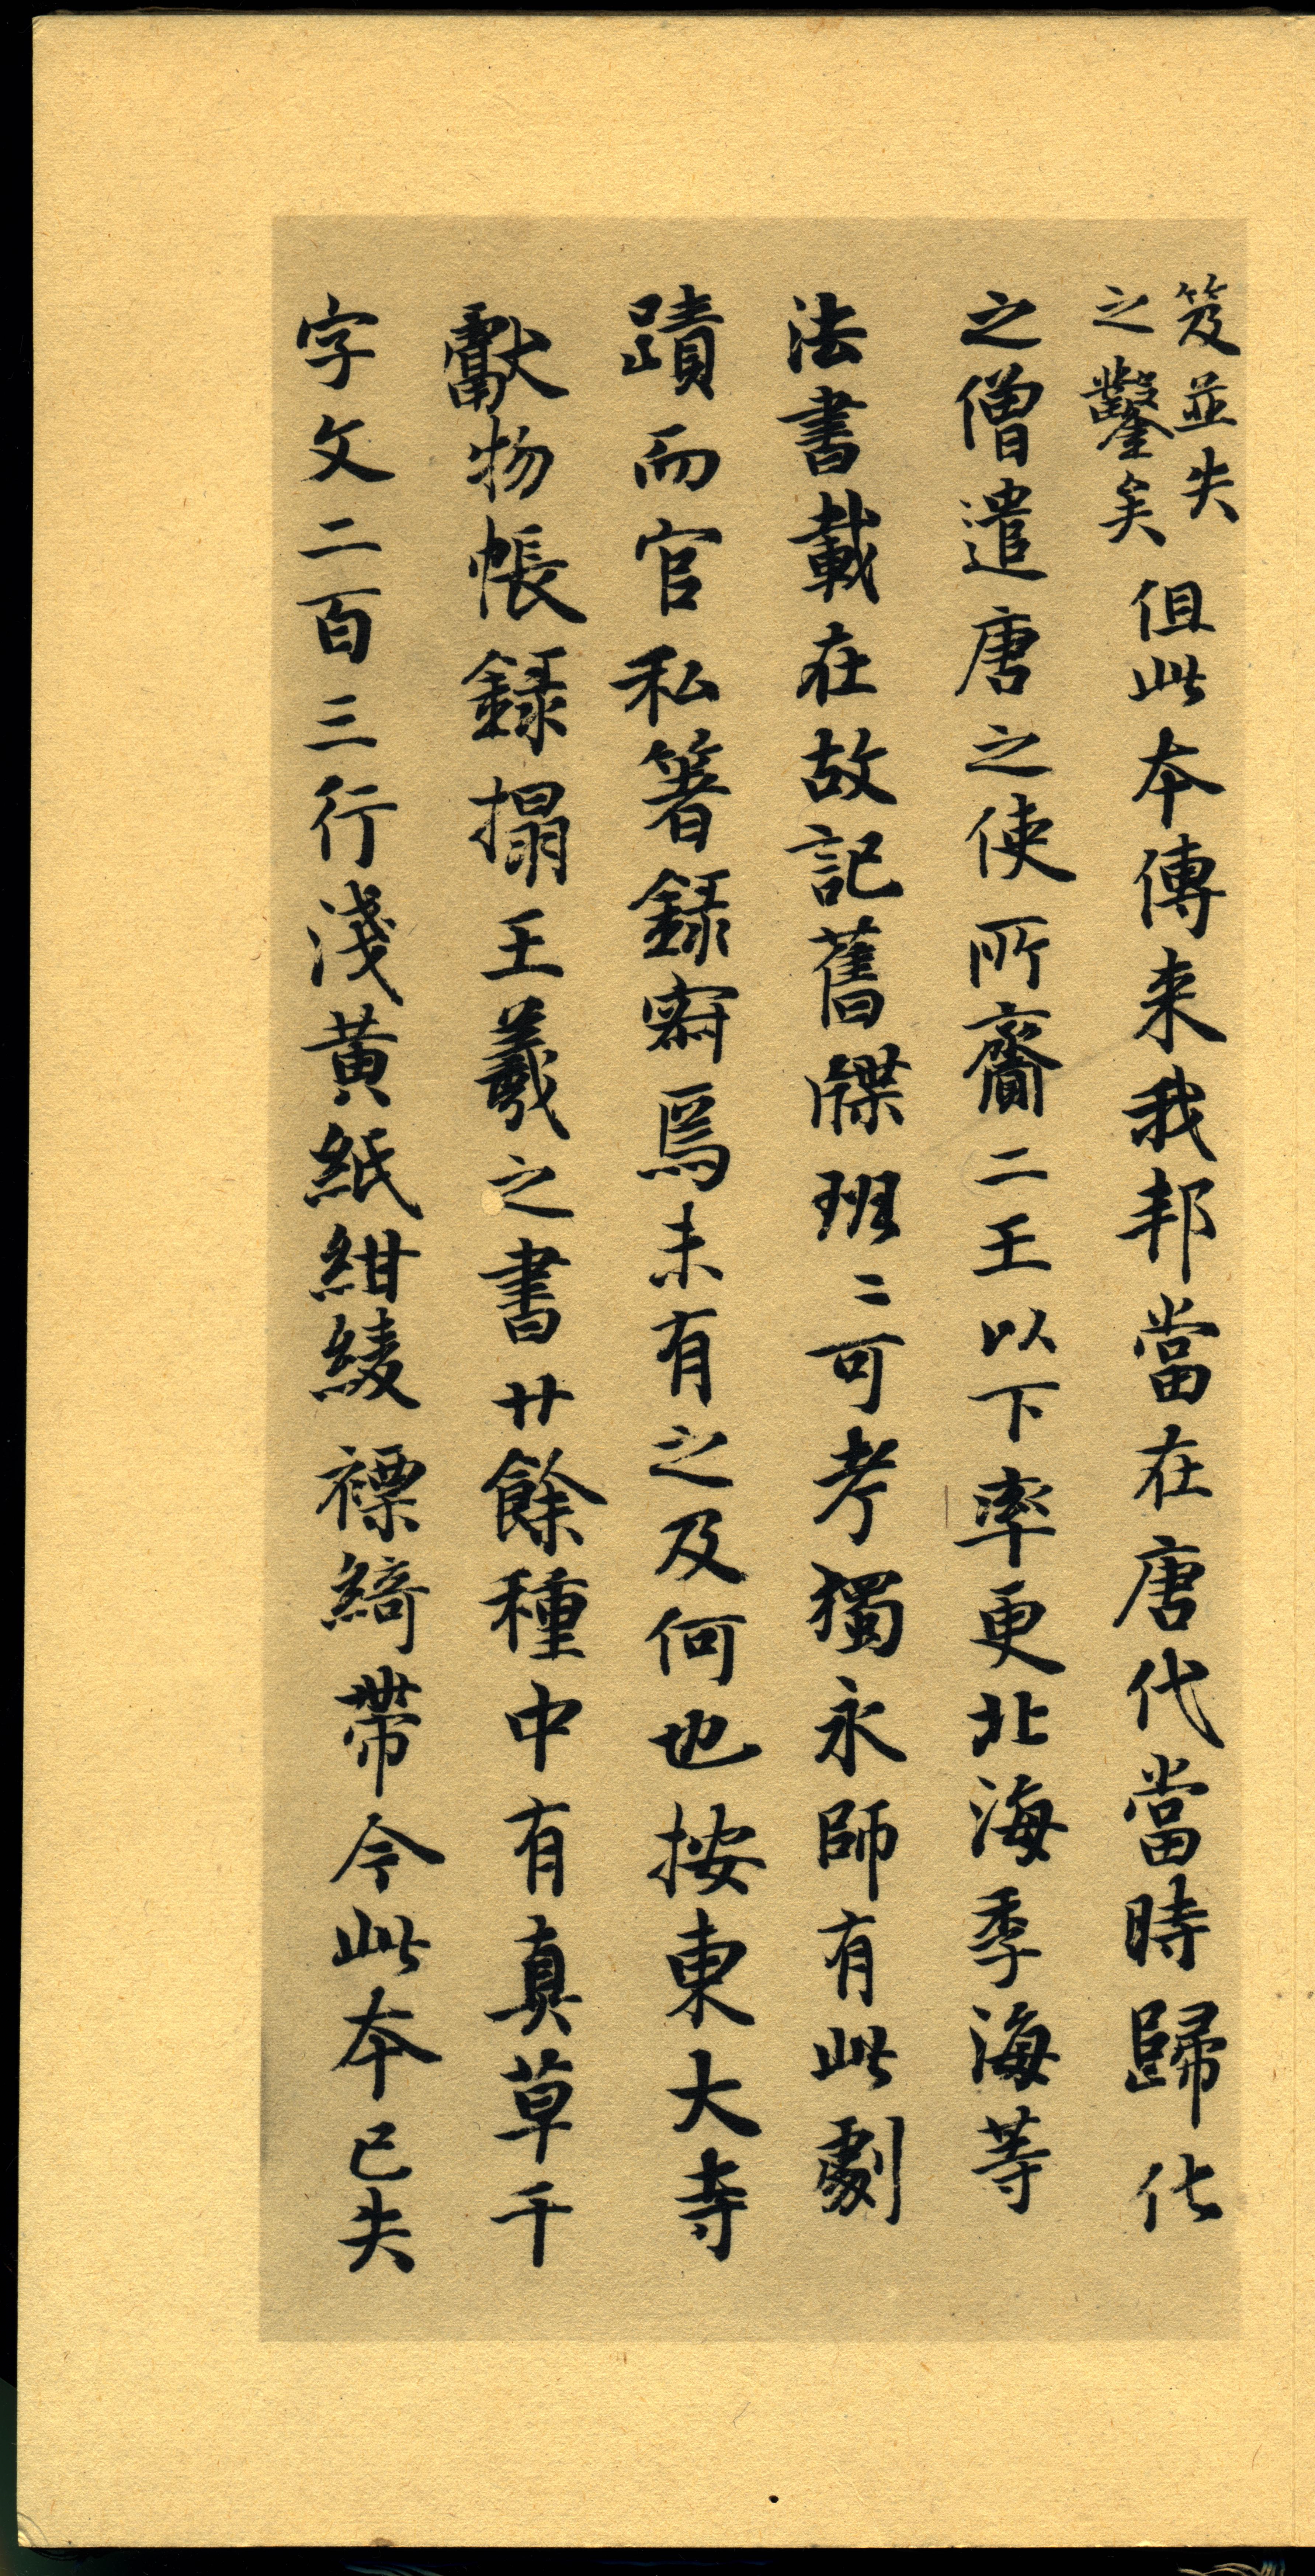 笈並失
之鑿矣
但此本傳来我邦當在唐代當時歸化
之僧遣唐之使所齎二王以下率更北海季海等
法書載在故記舊牒班〻可考獨永師有此劇
蹟而官私箸錄竊焉未有之及何也按東大寺
獻物帳錄搨王羲之書廿餘種中有真草千
字文二百三行淺黄紙紺綾褾綺帶今此本已失